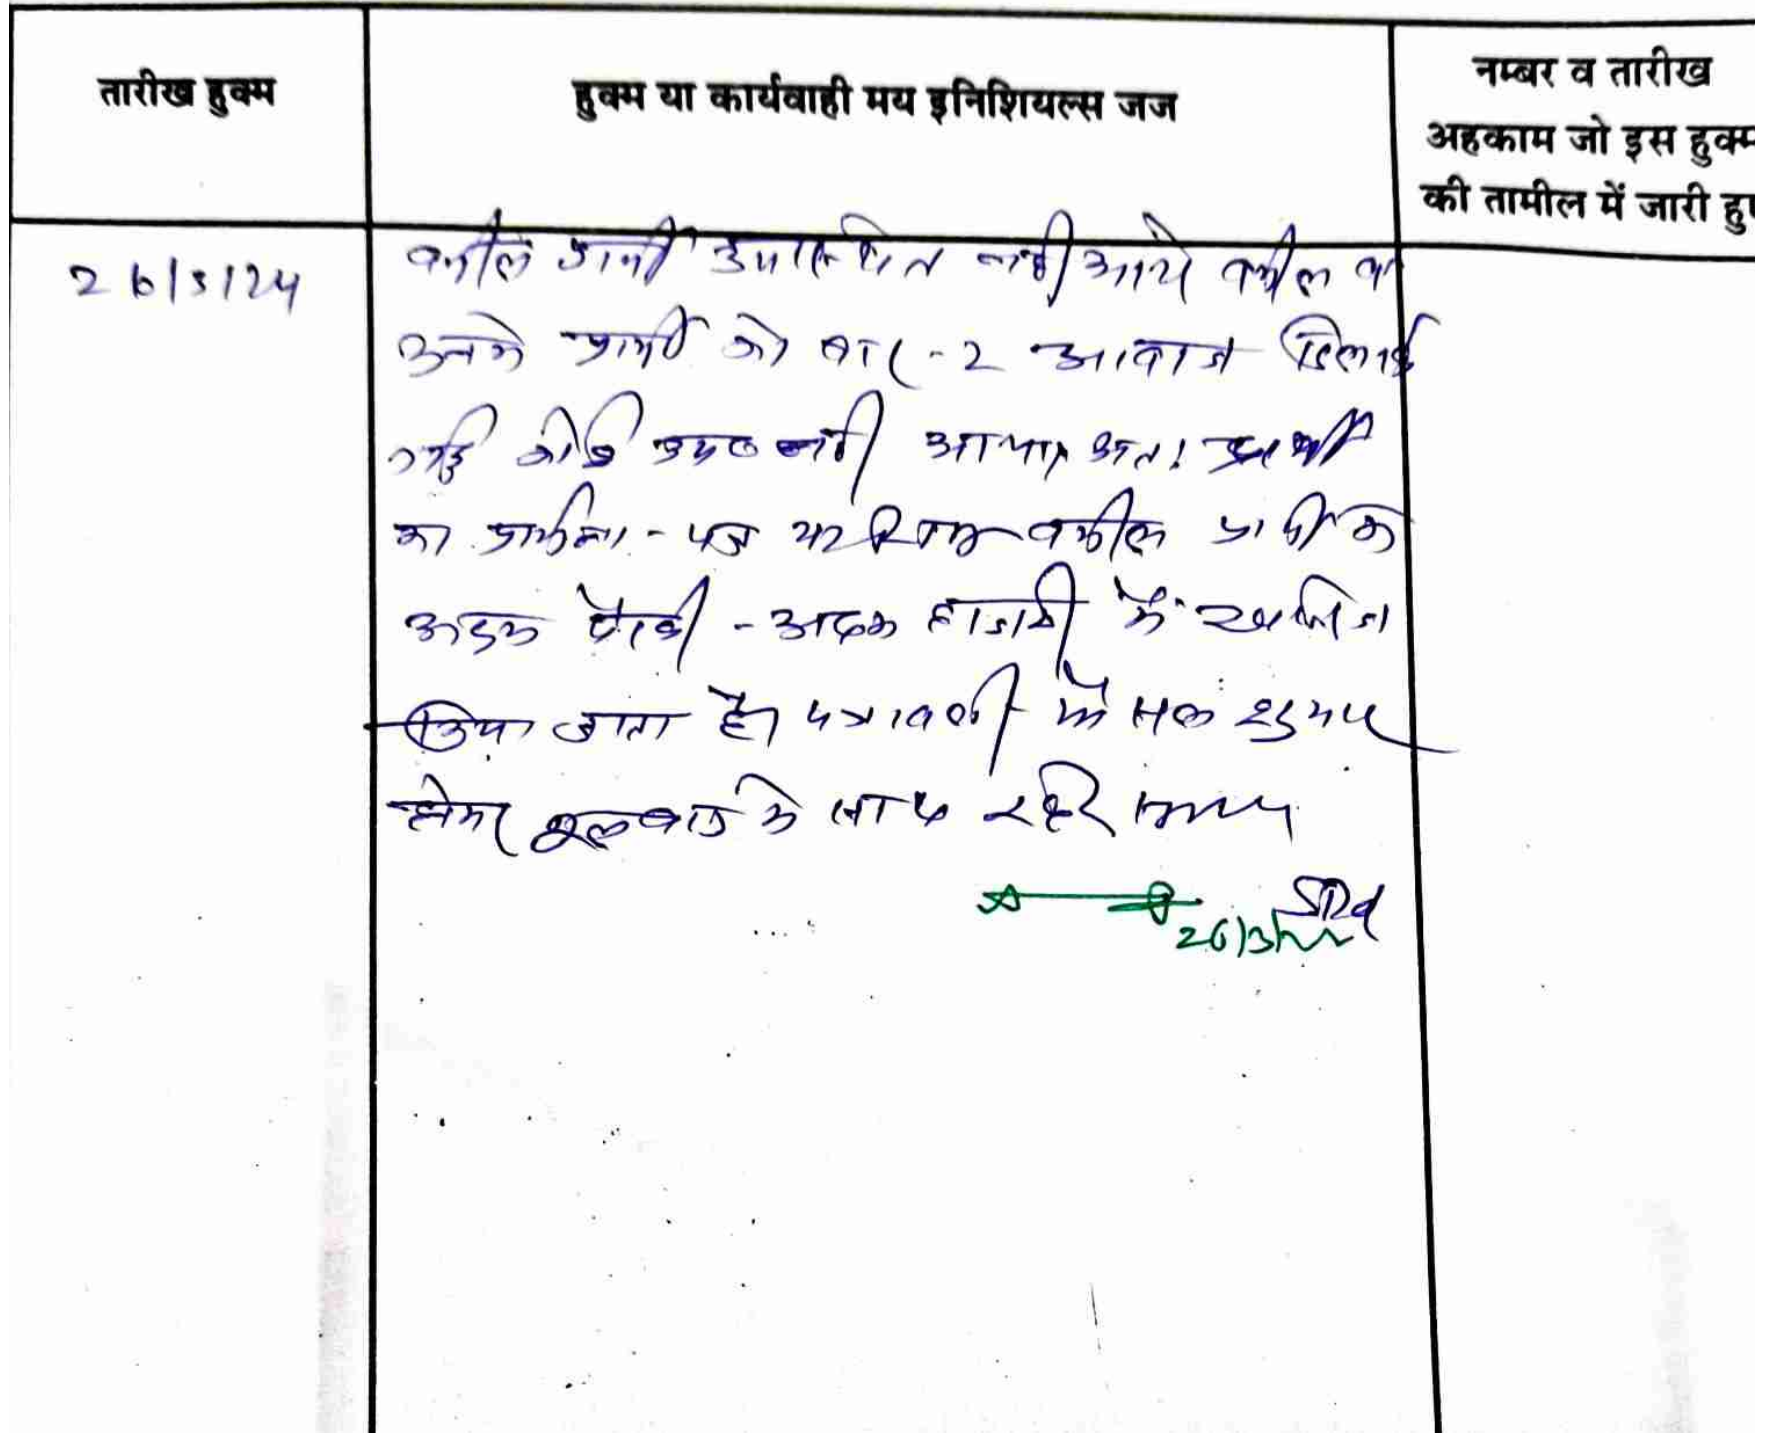 तारीख हुक्म
हुक्म या कार्यवाही मय इनिशियल्स जज
नम्बर व तारीख
अहकाम जो इस हुक्म
की तामील में जारी हु
26/3/24
वकील प्रार्थी उपस्थित नहीं आये वकील व
उनके प्रार्थी को बार-2 आवाज दिलाई
गई कोई उप० नहीं आया। अतः प्रार्थी
का प्रार्थना-पत्र वकील प्रार्थी के
अदम पैरवी - अदम हाजरी में खारिज
किया जाता है। पत्रावली फैसल शुमार
होकर मूलवाद के साथ रहे।
26/3/24